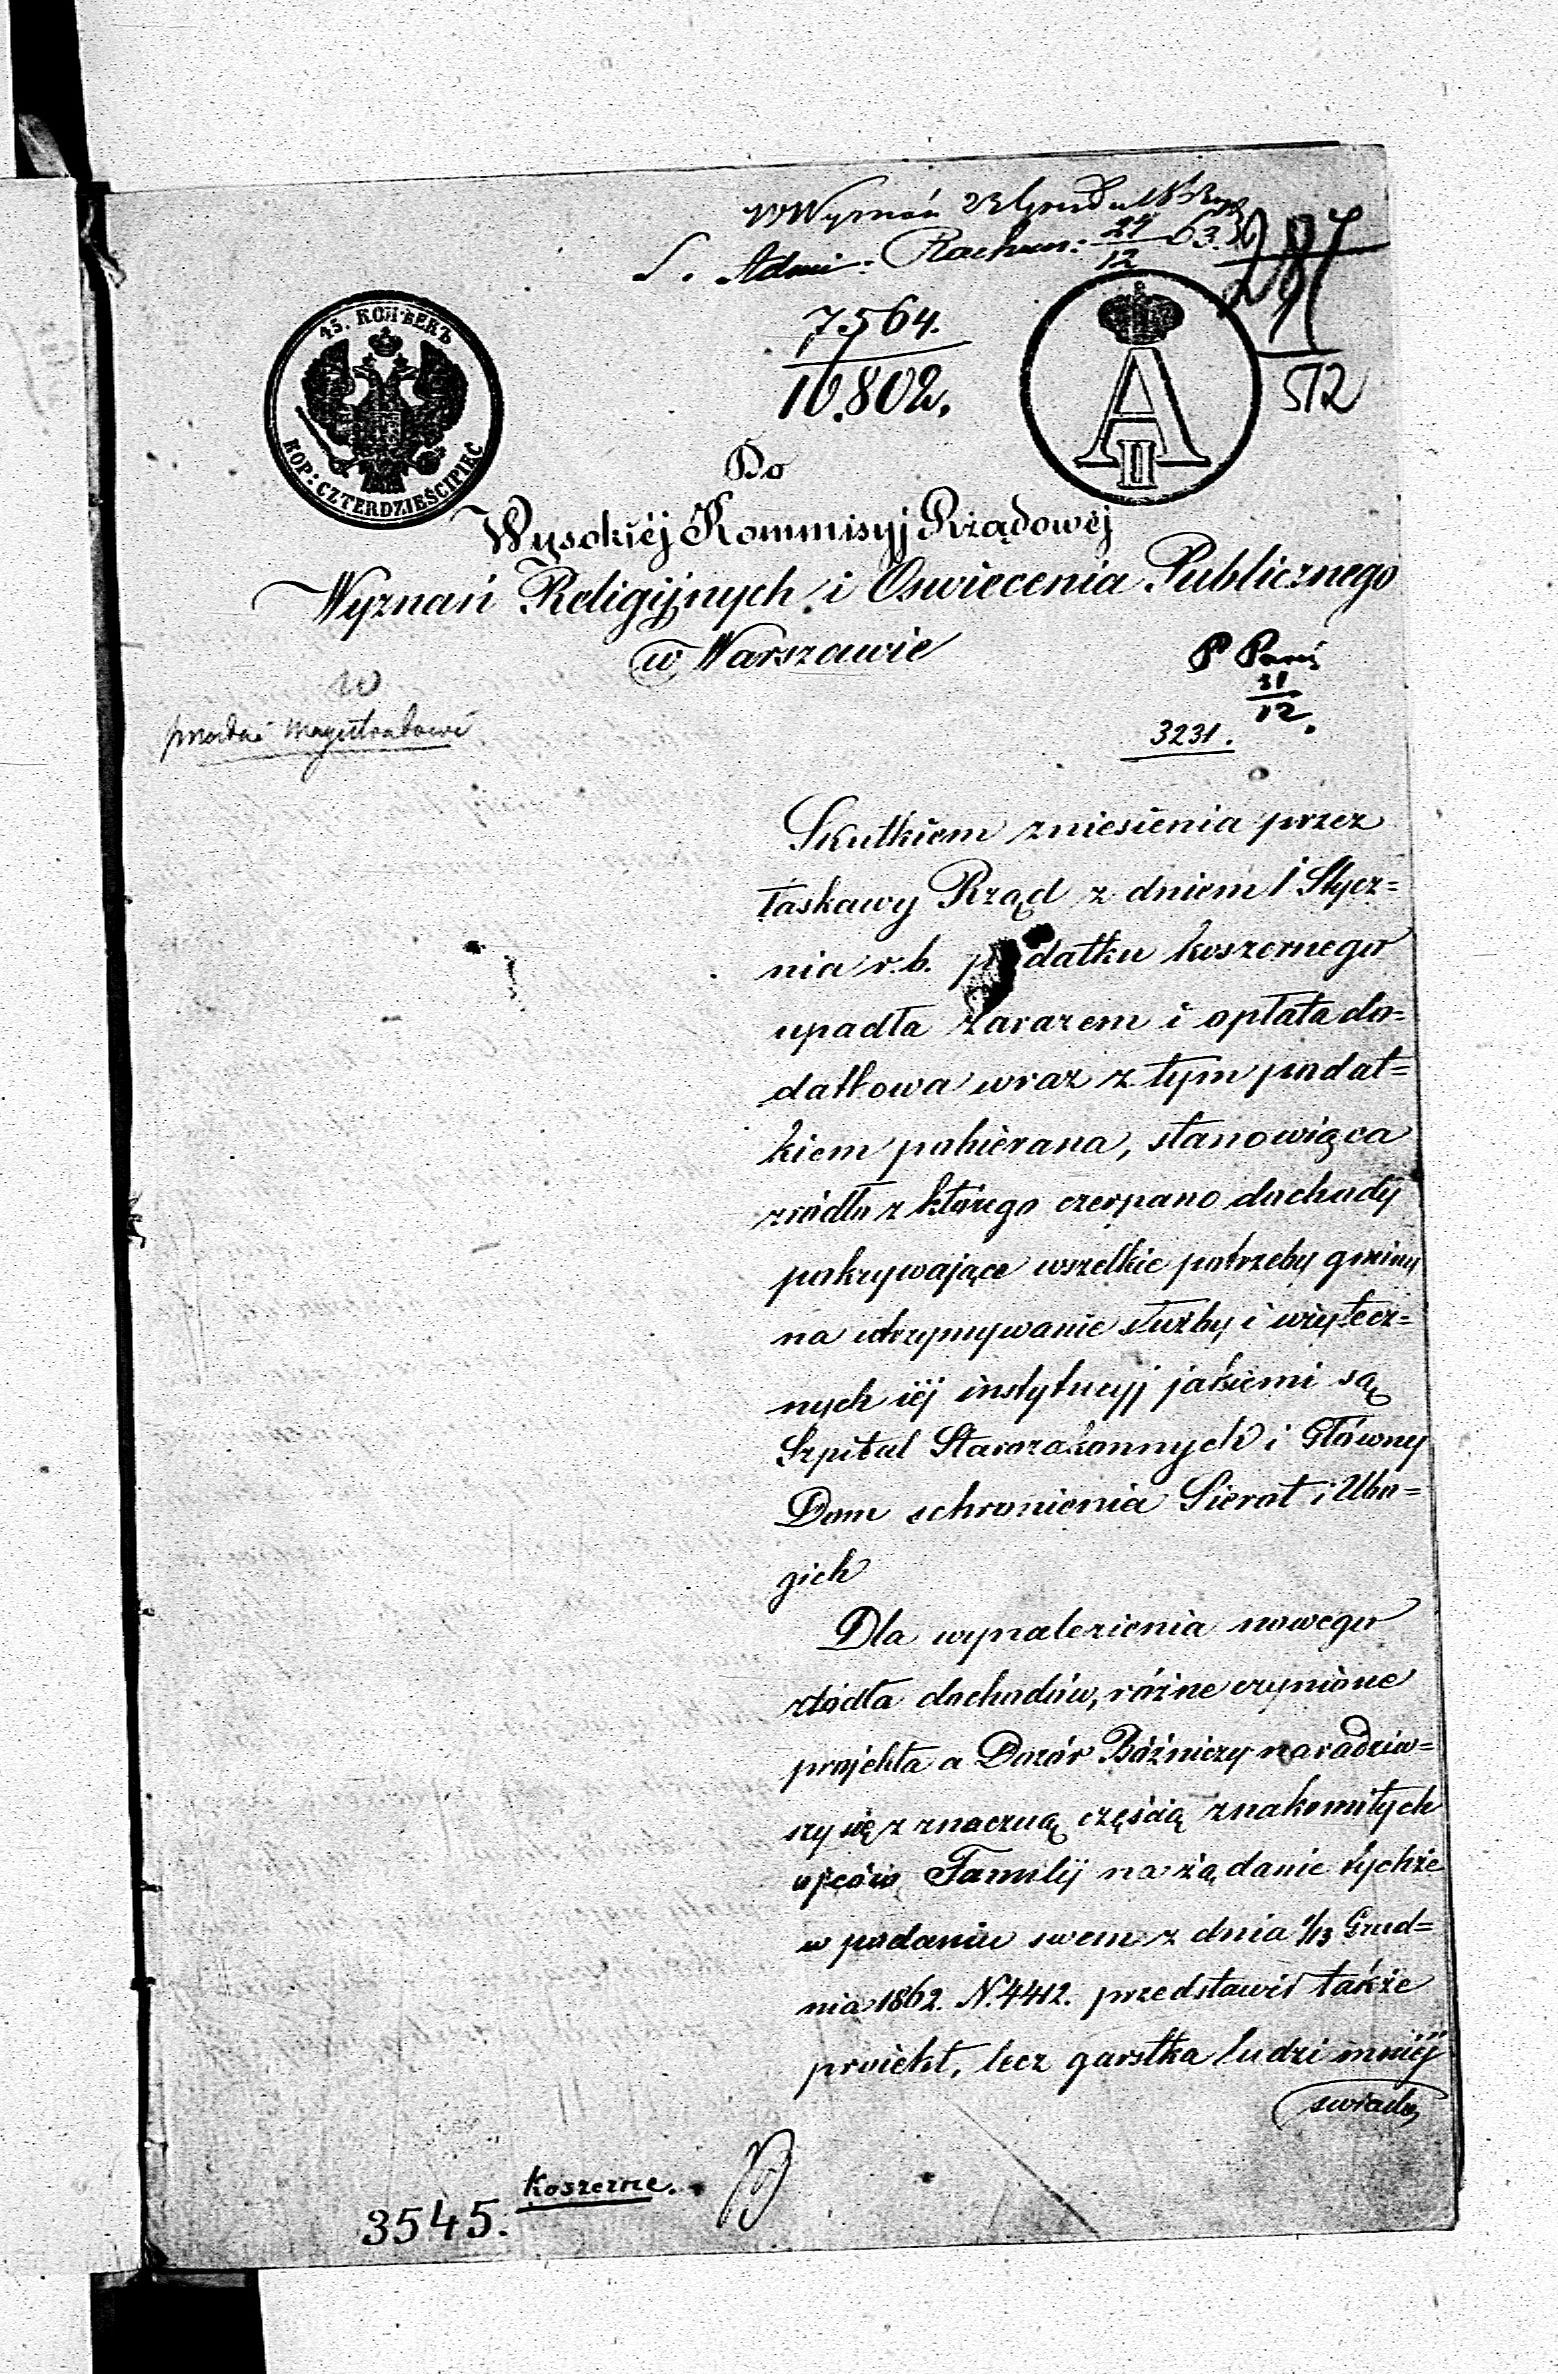 W Wyznań 23 Grud
S. Admi: Rachun: 24/12 63.
287
572
7564.
10.802.
45. КОПѢЕКЪ
KOP: CZTERDZIEŚCIPIĘĆ
A II
Do
Wysokiéj Kommisyj Rządowéj
Wyznań Religijnych i Oswiecenia Publicznego
w Warszawie
P
31/12.
3231.
Skutkiem zniesienia przez
łaskawy Rząd z dniem 1 Stycz=
nia r.b. podatku koszernego
upadła zarazem i opłata do=
datkowa wraz z tym podat=
kiem pobierana, stanowiąca
zródło z którego czerpano dochody
pokrywające wszelkie potrzeby gminy
na utrzymywanie służby i użytecz=
nych iéj instytucyj jakiemi są
Szpital Starozakonnych i Główny
Dom schronienia Sierot i Ubo=
gich
Dla wynalezienia nowego
źródła dochodów, różne czynione
projekta a Dozór Bóźniczy naradziw=
szy się z znaczną częścią znakomitych
ojców Familij na żądanie tychże
w podaniu swem z dnia 1/13 Grud=
nia 1862. N. 4412. przedstawił także
proiekt, lecz garstka ludzi mniéj
swiado
Koszerne.
3545.